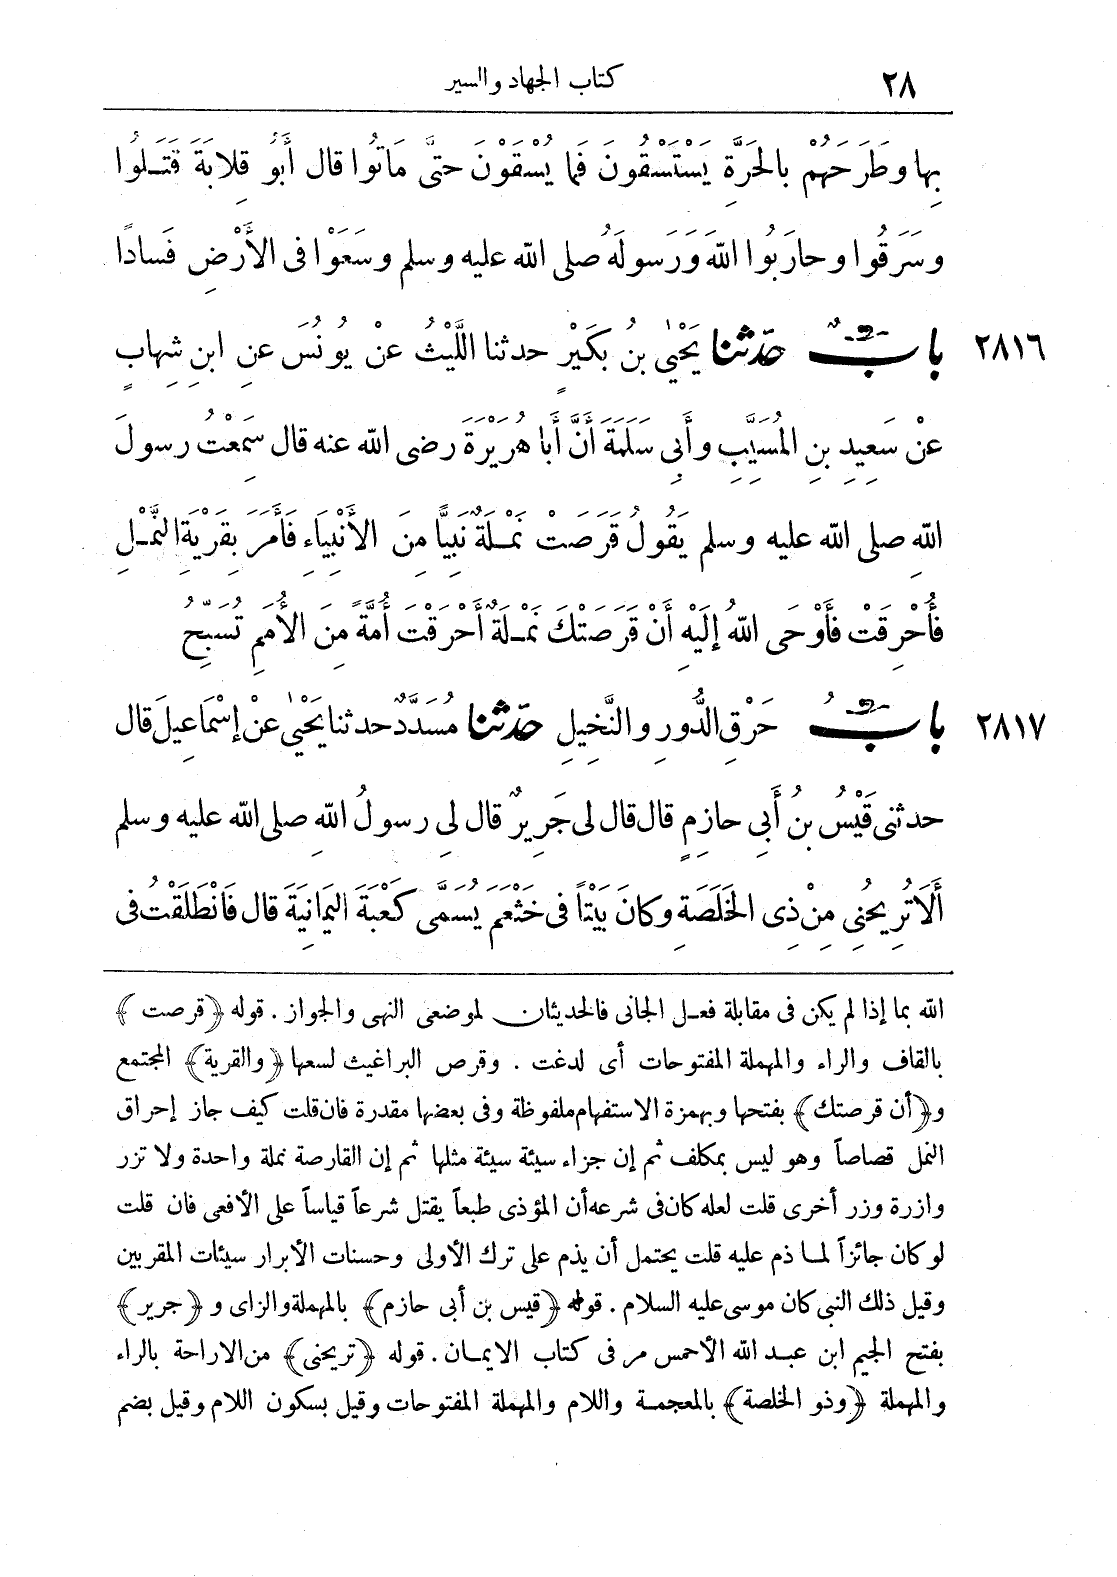 ٢٨ كتاب الجهاد والسير
بِها وطَرَحَهُمْ بالحَرَّةِ يَسْتَسْقُونَ فَما يُسْقَوْنَ حتَّى مَاتُوا قال أَبُو قِلابَةَ قَتَلُوا
وسَرَقُوا وحارَبُوا اللهَ وَرَسولَهُ صلى الله عليه وسلم وسَعَوْا فى الأَرْضِ فَسادًا
٢٨١٦ بابٌ حدّثنا يَحْيٰى بنُ بكَيْرٍ حدثنا اللَّيْثُ عنْ يُونُسَ عنِ ابنِ شِهابٍ
عنْ سَعِيدِ بنِ المُسَيَّبِ وأَبِى سَلَمَةَ أَنَّ أَبا هُرَيْرَةَ رضى الله عنه قال سَمِعْتُ رسولَ
اللهِ صلى الله عليه وسلم يَقُولُ قَرَصَتْ نَمْلَةٌ نَبِيًّا مِنَ الأَنْبِيَاءِ فَأَمَرَ بِقَرْيَةِ النَّمْلِ
فَأُحْرِقَتْ فَأَوْحَى اللهُ إلَيْهِ أَنْ قَرَصَتْكَ نَمْلَةٌ أَحْرَقْتَ أُمَّةً مِنَ الأُمَمِ تُسَبِّحُ
٢٨١٧ بابُ حَرْقِ الدُّورِ والنَّخِيلِ حدّثنا مُسَدَّدٌ حدثنا يَحْيٰى عنْ إسْمَاعِيلَ قال
حدثنى قَيْسُ بنُ أَبِى حازِمٍ قال قال لى جَرِيرٌ قال لِى رسولُ اللهِ صلى الله عليه وسلم
أَلَا تُرِيحُنِى مِنْ ذِى الخَلَصَةِ وكانَ بَيْتاً فى خَثْعَمَ يُسَمَّى كَعْبَةَ اليَمانِيَةَ قال فَانْطَلَقْتُ فى
الله بما إذا لم يكن فى مقابلة فعل الجانى فالحديثان لموضعى النهى والجواز . قوله ﴿قرصت﴾
بالقاف والراء والمهملة المفتوحات أى لدغت . وقرص البراغيث لسعها ﴿والقرية﴾ المجتمع
و﴿أن قرصتك﴾ بفتحها وبهمزة الاستفهام ملفوظة وفى بعضها مقدرة فان قلت كيف جاز إحراق
النمل قصاصاً وهو ليس بمكلف ثم إن جزاء سيئة سيئة مثلها ثم إن القارصة نملة واحدة ولا تزر
وازرة وزر أخرى قلت لعله كان فى شرعه أن المؤذى طبعاً يقتل شرعاً قياساً على الأفعى فان قلت
لو كان جائزاً لما ذم عليه قلت يحتمل أن يذم على ترك الأولى وحسنات الأبرار سيئات المقربين
وقيل ذلك النبى كان موسى عليه السلام . قوله ﴿قيس بن أبى حازم﴾ بالمهملة والزاى و﴿جرير﴾
بفتح الجيم ابن عبد الله الأحمس مر فى كتاب الايمان . قوله ﴿تريحنى﴾ من الاراحة بالراء
والمهملة ﴿وذو الخلصة﴾ بالمعجمة واللام والمهملة المفتوحات وقيل بسكون اللام وقيل بضم